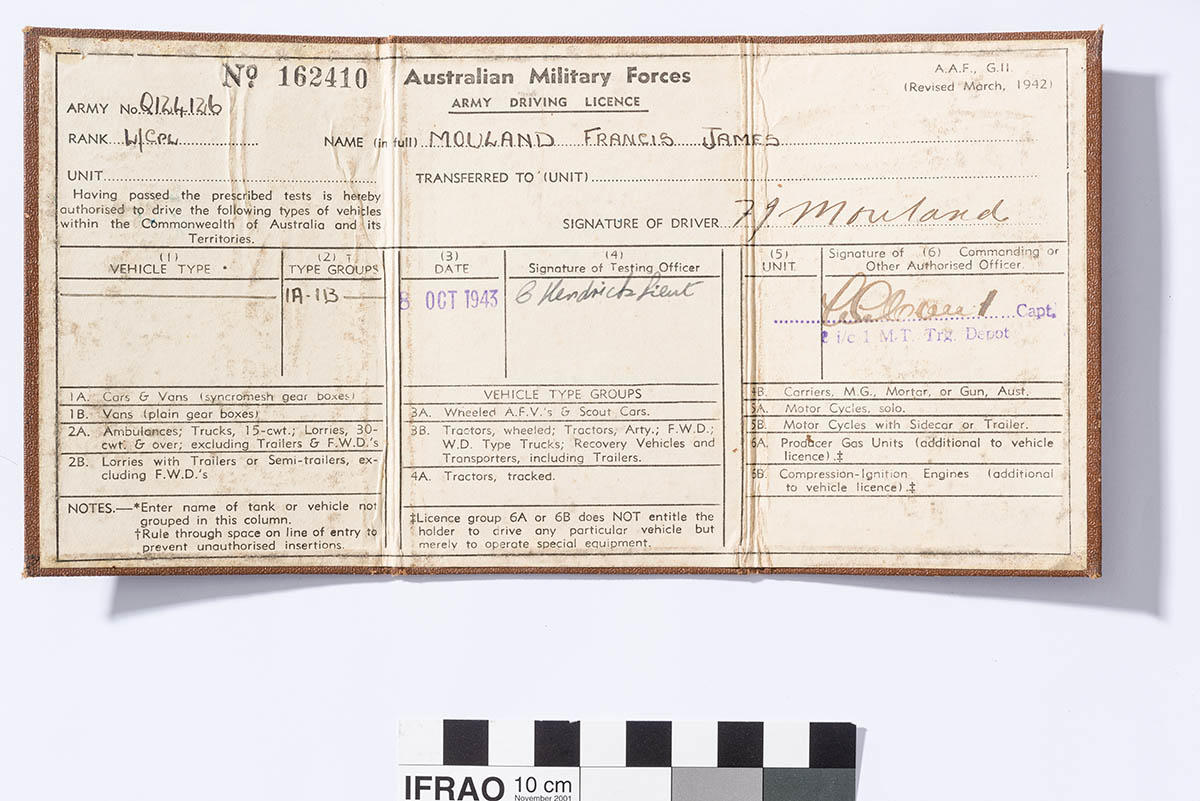 Nº 162410
Australian Military Forces
A.A.F., G.11.
(Revised March, 1942)
ARMY DRIVING LICENCE
ARMY No. Q124126
RANK L/CPL NAME (in full) MOULAND FRANCIS JAMES
UNIT TRANSFERRED TO (UNIT)
Having passed the prescribed tests is hereby
authorised to drive the following types of vehicles
within the Commonwealth of Australia and its
Territories.
SIGNATURE OF DRIVER F J Mouland
(1)
VEHICLE TYPE *
(2) †
TYPE GROUPS
1A-1B
(3)
DATE
8 OCT 1943
(4)
Signature of Testing Officer
Hendricks Lieut
(5)
UNIT
Signature of (6) Commanding or
Other Authorised Officer.
Capt.
2 i/c 1 M.T. Trg. Depot
1A. Cars & Vans (syncromesh gear boxes)
1B. Vans (plain gear boxes)
2A. Ambulances; Trucks, 15-cwt.; Lorries, 30-
cwt. & over; excluding Trailers & F.W.D.'s
2B. Lorries with Trailers or Semi-trailers, ex-
cluding F.W.D.'s
NOTES.—*Enter name of tank or vehicle not
grouped in this column.
†Rule through space on line of entry to
prevent unauthorised insertions.
VEHICLE TYPE GROUPS
3A. Wheeled A.F.V.'s & Scout Cars.
3B. Tractors, wheeled; Tractors, Arty.; F.W.D.;
W.D. Type Trucks; Recovery Vehicles and
Transporters, including Trailers.
4A. Tractors, tracked.
‡Licence group 6A or 6B does NOT entitle the
holder to drive any particular vehicle but
merely to operate special equipment.
4B. Carriers, M.G., Mortar, or Gun, Aust.
5A. Motor Cycles, solo.
5B. Motor Cycles with Sidecar or Trailer.
6A. Producer Gas Units (additional to vehicle
licence).‡
6B. Compression-Ignition Engines (additional
to vehicle licence).‡
IFRAO 10 cm
November 2001